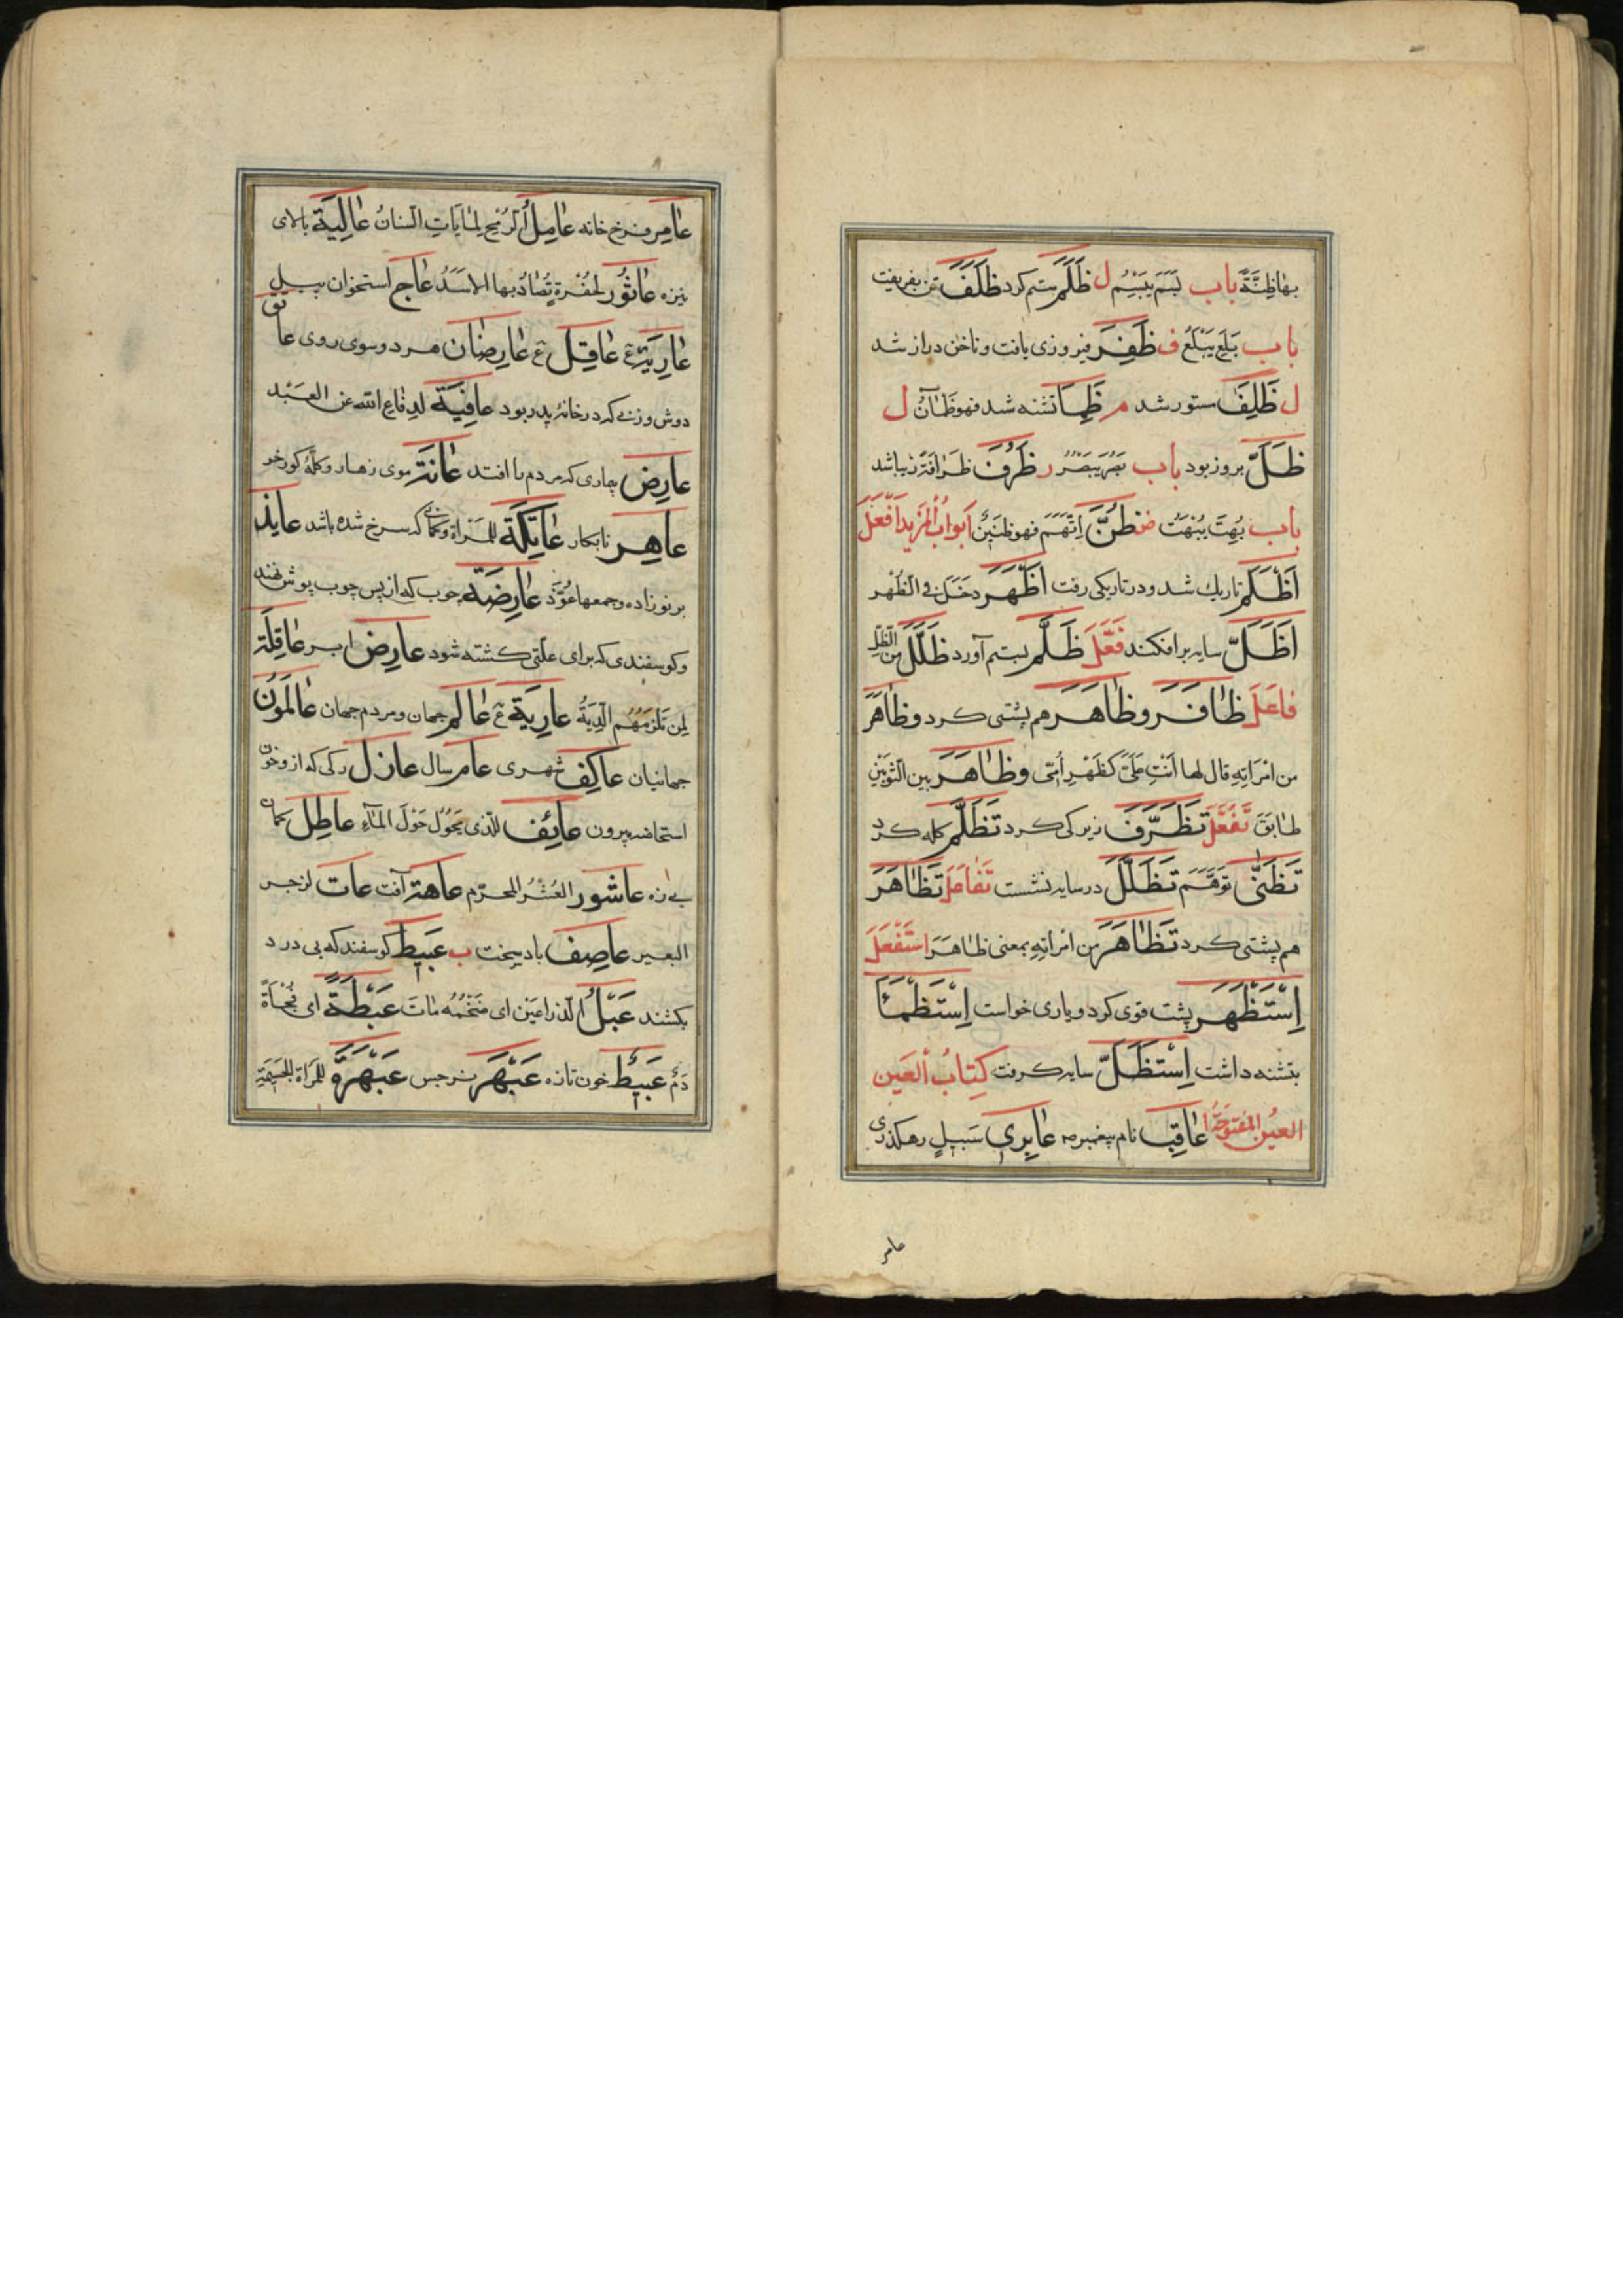 بها ظنة باب بسم يبسم ل ظلم ستم كرد ظلف تن بفريفت
باب بلع يبلع ف ظفر فيروزى يافت وناخن دراز شد
ل ظلف ستور شد م ظمأ تشنه شد فهو ظمآن ل
ظل بروز بود باب بصر يبصر ر ظرف ظرافة زيبا شد
باب بهت يبهت ض ظن اتهم فهو ظنين ابواب المزيد افعل
اظلم تاريك شد ودر تاريكى رفت اظهر دخل فى الظهر
اظل سايه بر افكند فعل ظلم بستم آورد ظلل من الظل
فاعل ظافر وظاهر هم پشتى كرد وظاهر
من امراته قال لها انت على كظهر امى وظاهر بين الثوبين
طابق تفعل تظرف زيركى كرد تظلم كله كرد
تظنى توهم تظلل در سايه نشست تفاعل تظاهر
هم پشتى كرد تظاهر من امراته بمعنى ظاهر استفعل
استظهر پشت قوى كرد ويارى خواست استظمأ
بتشنه داشت استظل سايه كرفت كتاب العين
العين المفتوحة ا عاقب نام پيغمبر عابرى سبيل رهكذرى
عامر
عامر فرخ خانه عامل الرمح لما يات السنان عالية بالاى
نيزه عاثور لحفرة تصاد بها الاسد عاج استخوان پيل
عارية ع عاقل ع عارضان مرد وسوى روى عاتق
دوش وزنى كه در خانه پدر بود عافية لدفاع الله عن العبد
عارض بيمارى كه مردم را افتد عانة موى زهار وكله كورخر
عاهر نابكار عاتكة للمراة وكمانى كه سرخ شده باشد عايذ
بر نوزاده وجمعها عوذ عارضة چوب كه از پس چوب پوشش نهند
وكوسفندى كه براى علتى كشته شود عارض ابر عاقلة
لمن تلزمهم الدية عارية ع عالم جهان ومردم جهان عالمون
جهانيان عاكف شهرى عام سال عاذل ركى كه از وخون
استحاضه بيرون عائف للذى يحول حول الماء عاطل كمان
بى زه عاشور العشر المحرم عاهة آفت عات لزجر
البعير عاصف باد سخت ب عبيط كوسفند كه بى درد
بكشند عبل الذراعين اى ضخمه مات عبطة اى فجأة
دم عبيط خون تازه عبهر نرجس عبهرة للمراة الجسيمة